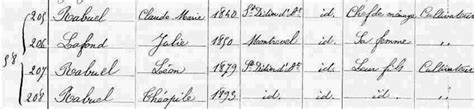 58
205 Rabuel Claude Marie 1840 St Didier d'A. id. Chef de ménage Cultivateur
206 Lafond Julie 1850 Montrevel id. Sa femme "
207 Rabuel Léon 1879 St Didier d'A. id. Leur fils Cultivateur
208 Rabuel Théophile 1893 id. id. id. "